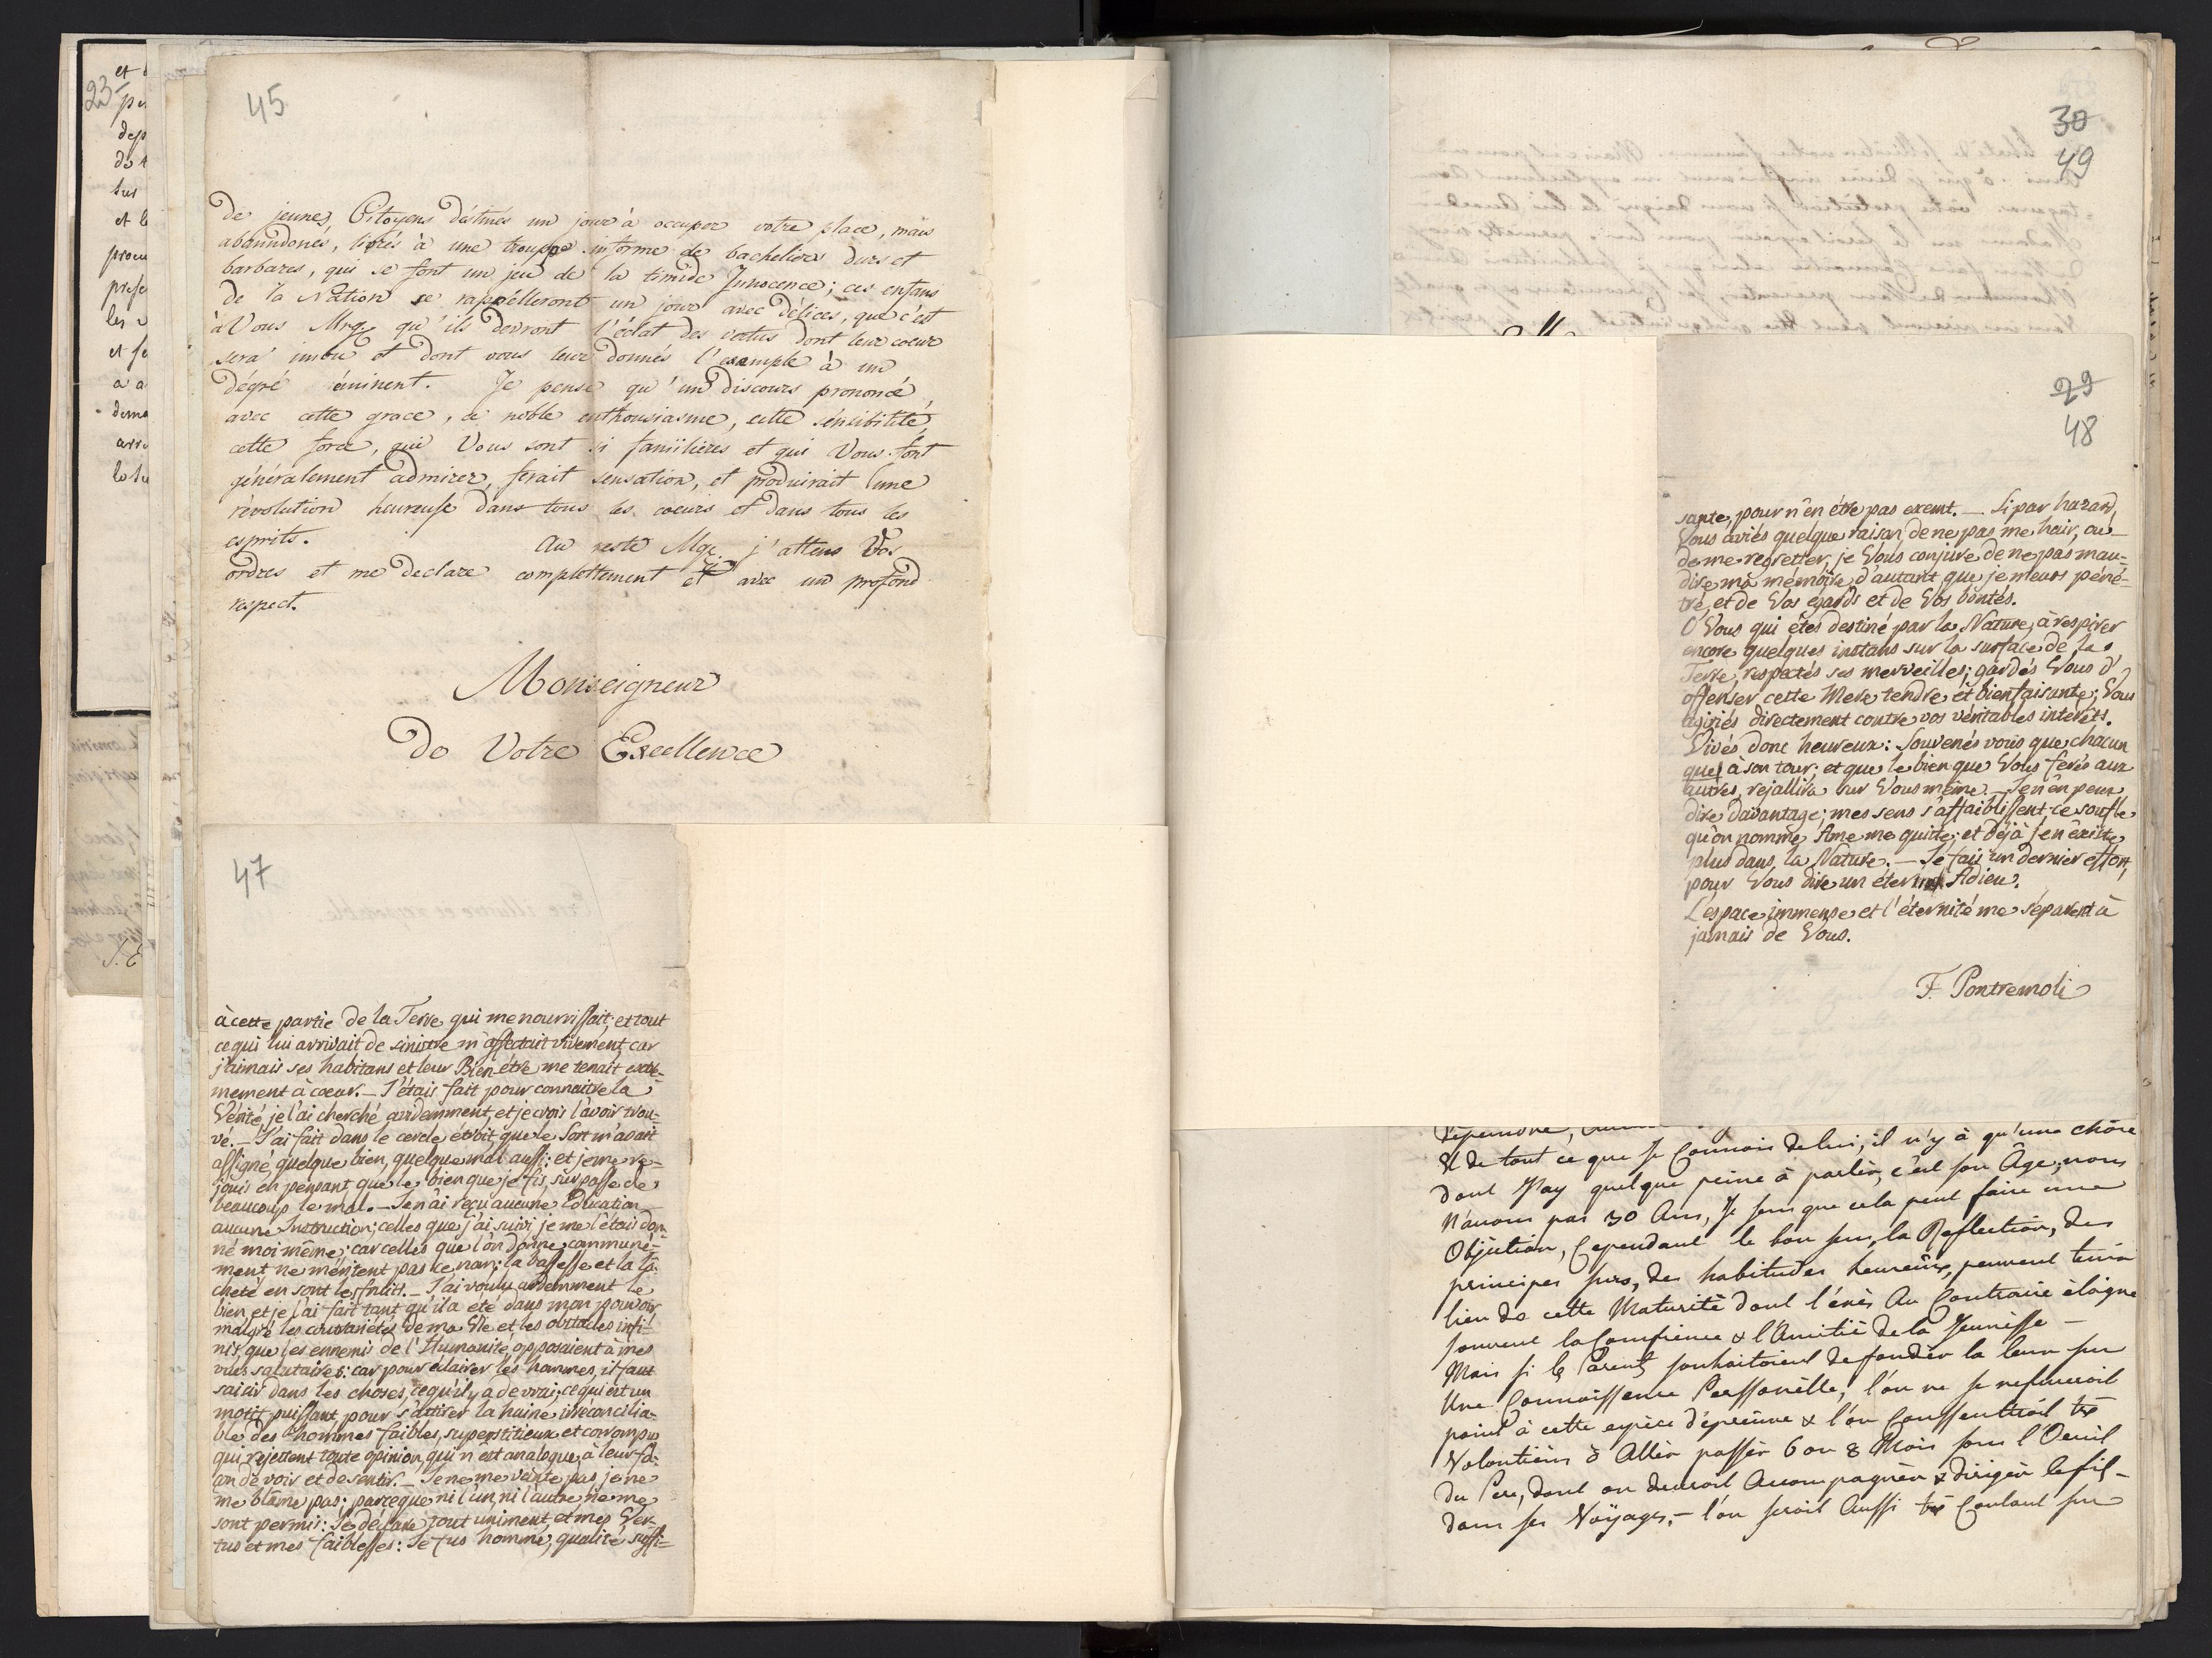 45
de jeunes Citoyens déstinés un jour à occuper votre place, mais
abandonés, livrés à une trouppe informe de bacheliers durs et
barbares, qui se font un jeu de la timide Innocence; ces enfans
de la Nation se rappélleront un jour avec délices, que c'est
à Vous Mrg. qu'ils devront l'éclat des vertus dont leur coeur
sera imbu et dont vous leur donnés l'exemple à un
dégré éminent. Je pense qu'un discours prononcé,
avec cette grace, ce noble enthousiasme, cette sénsibilité,
cette force, qui Vous sont si familières et qui Vous font
généralement admirer, ferait sensation, et produirait une
révolution heureuse dans tous les coeurs et dans tous les
esprits.
Au reste Mgr. j'attens Vos
ordres et me declare complettement et avec un profond
respect.
Monseigneur
De Votre Excellence
47
à cette partie de la Terre qui me nourrissait; et tout
ce qui lui arrivait de sinistre m'affectait vivement, car
j'aimais ses habitans et leur Bien être me tenait extrê-
mement à coeur. — J'étais fait pour connaitre la
Vérité, je l'ai cherché ardemment, et je crois l'avoir trou-
vé. — J'ai fait dans le cercle étroit que le Sort m'avait
assigné, quelque bien, quelque mal aussi; et je me re-
jouis en pensant que le bien que je fis, surpasse de
beaucoup le mal. — Je n'ai reçu aucune Education
aucune Instruction; celles que j'ai suivi je me l'étais don-
né moi même; car celles que l'on donne communé-
ment ne méritent pas ce nom; la bassesse et la la-
cheté en sont les fruits. — J'ai voulu ardemment le
bien et je l'ai fait tant qu'il a été dans mon pouvoir
malgré les contrariétés de ma Vie et les obstacles infi-
nis, que les ennemis de l'Humanité, opposaient à mes
vues salutaires: car pour éclairer les hommes, il faut
saisir dans les choses, ce qu'il y a de vrai; ce qui est un
motif puissant pour s'attirer la haine irréconcilia-
ble des hommes faibles, superstitieux et corrompus
qui rejettent toute opinion qui n'est analogue à leur fa-
çon de voir et de sentir. — Je ne me vante pas, je ne
me blâme pas; parceque ni l'un, ni l'autre ne me
sont permis: Je déclare tout uniment et mes Ver-
tus et mes faiblesses: Je fus homme, qualité suffi-
30
49
29
48
sante, pour n'en être pas exemt. — Si par hazard,
Vous aviés quelque raison de ne pas me hair, ou
de me regretter, je Vous conjure de ne pas mau-
dire ma mémoire, d'autant que je meurs péné-
tré, et de Vos egards et de Vos bontés.
O Vous qui êtes destiné par la Nature, à respirer
encore quelques instans sur la surface de la
Terre, respectés ses merveilles; gardés Vous d'
offenser cette Mere tendre et bienfaisante; Vous
agiriés directement contre vos véritables interêts.
Vivés donc heureux: Souvenés vous que chacun
que à son tour; et que le bien que Vous ferés aux
autres, rejallira sur Vous même. — Je n'en peux
dire davantage; mes sens s'affaiblissent, ce soufle
qu'on nomme Ame me quitte; et déjà je n'éxiste
plus dans la Nature. — Je fais un dernier effort,
pour Vous dire un éternel Adieu.
L'espace immense et l'éternité me séparent à
jamais de Vous.
F. Pontremoli
& de tout ce que Je Connois de lui, il n'y à qu'une chôse
dont J'ay quelque peine à parlèr, c'est son Âge; nous
N'avons pas 30 Ans, Je sens que cela peut faire une
Objèction, Cependant le bon sens, la Reflection, des
principes surs, des habitudes heureuses, peuvent tenir
lieu de cette Maturité dont l'excès Au Contraire éloigne
souvent la Confience & l'Amitiè de la Jeunesse —
Mais si les Parents souhaitoient de fonder la leur sur
Une Connoissance Perssonèlle, l'on ne se refuseroit
point à cette espèce d'épreuve & l'on Conssentiroit très
Volontièrs à Allèr passèr 6 ou 8 Mois sous l'Oeuil
du Pere, dont on devroit Accompagnèr & dirigèr le fils
dans ses Voÿages. — l'on seroit Aussi très Coulant sur